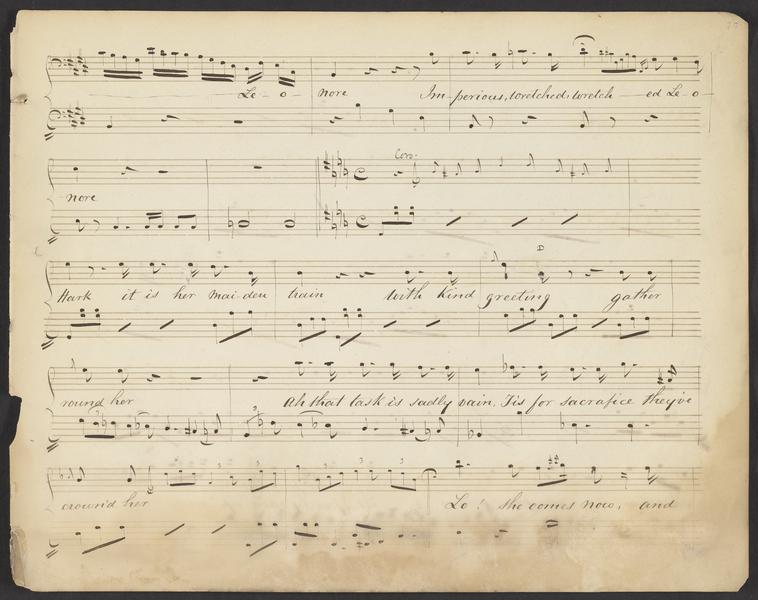 Le - o - nore Im-perious, wretched, wretch - ed Le - o -
Coro.
nore
D
Hark it is her mai-den train with kind greeting gather
round her ah that task is sadly vain, Tis for sacrafice they've
3 3
crown'd her Lo! she comes now, and
3 3 3 3